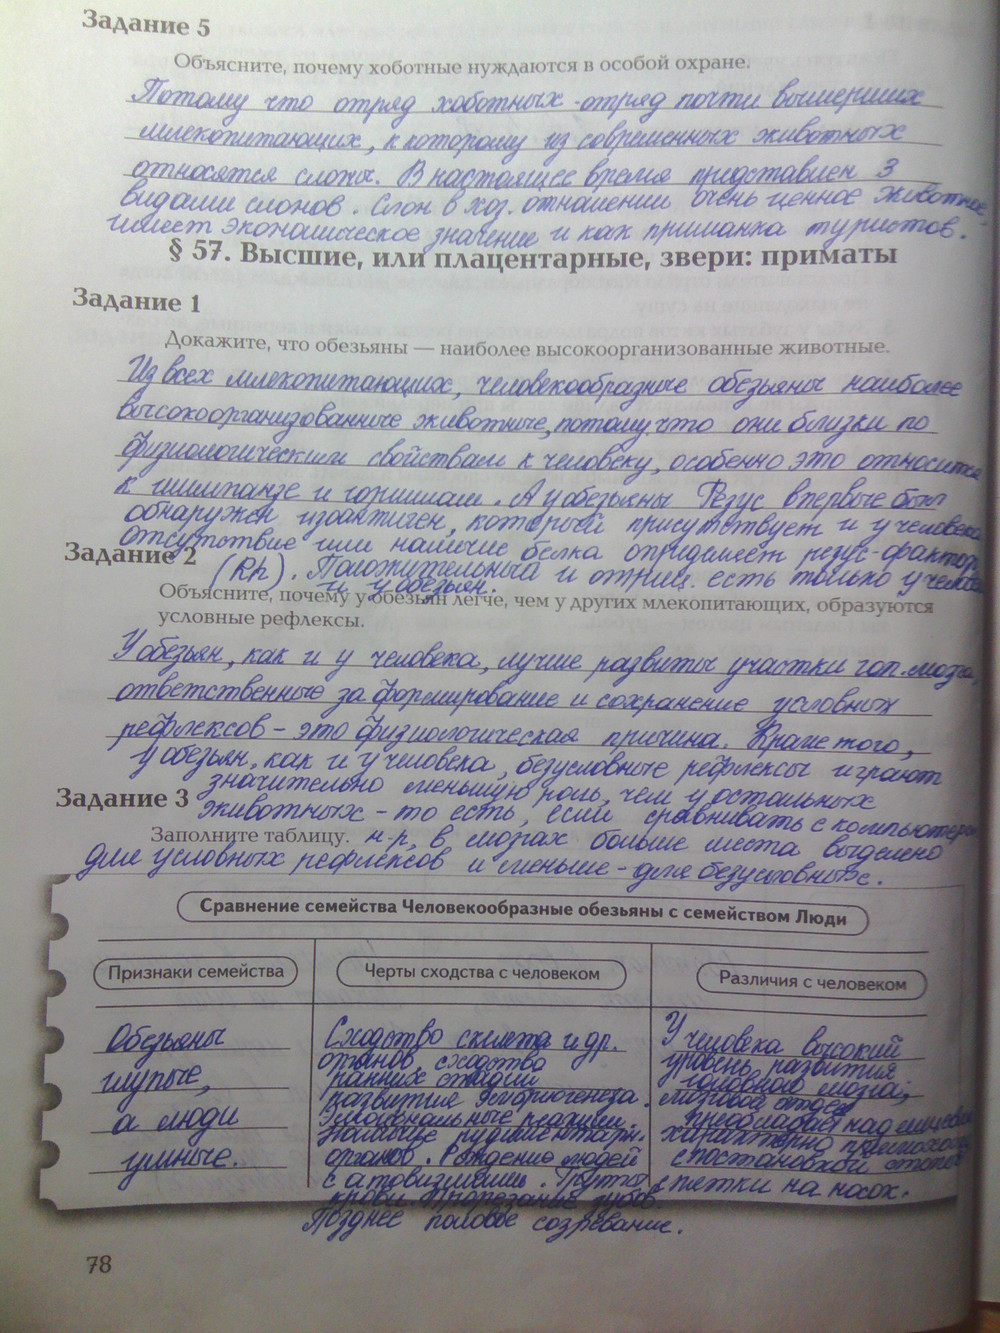 Задание 5
Объясните, почему хоботные нуждаются в особой охране.
Потому что отряд хоботных - отряд почти вымерших
млекопитающих, к которому из современных животных
относятся слоны. В настоящее время представлен 3
видами слонов. Слон в хоз. отношении очень ценное животное,
имеет экономическое значение и как приманка туристов.
§ 57. Высшие, или плацентарные, звери: приматы
Задание 1
Докажите, что обезьяны — наиболее высокоорганизованные животные.
Из всех млекопитающих, человекообразные обезьяны наиболее
высокоорганизованные животные, потому что они близки по
физиологическим свойствам к человеку, особенно это относится
к шимпанзе и гориллам. А у обезьяны Резус впервые был
обнаружен изоантиген, который присутствует и у человека
отсутствие или наличие белка определяет резус-фактор
Задание 2
(Rh). Положительный и отриц. есть только у человека
и у обезьян.
Объясните, почему у обезьян легче, чем у других млекопитающих, образуются
условные рефлексы.
У обезьян, как и у человека, лучше развиты участки гол. мозга,
ответственные за формирование и сохранение условных
рефлексов - это физиологическая причина. Кроме того,
у обезьян, как и у человека, безусловные рефлексы играют
значительно меньшую роль, чем у остальных
Задание 3
животных - то есть, если сравнивать с компьютером
Заполните таблицу.
н-р, в мозгах больше места выделено
для условных рефлексов и меньше - для безусловных.
Сравнение семейства Человекообразные обезьяны с семейством Люди
Признаки семейства
Черты сходства с человеком
Различия с человеком
Обезьяны
глупые,
а люди
умные.
Сходство скелета и др.
органов, сходство
ранних стадий
развития эмбриогенеза.
реакции.
Наличие рудиментарн.
органов. Рождение людей
с атовизмами. Группы
крови. Прорезание зубов.
Позднее половое созревание.
У человека высокий
уровень развития
головного мозга;
мозговой отдел
преобладает над лицевым
характерно прямохождение
с постановкой стопы
с пятки на носок.
78